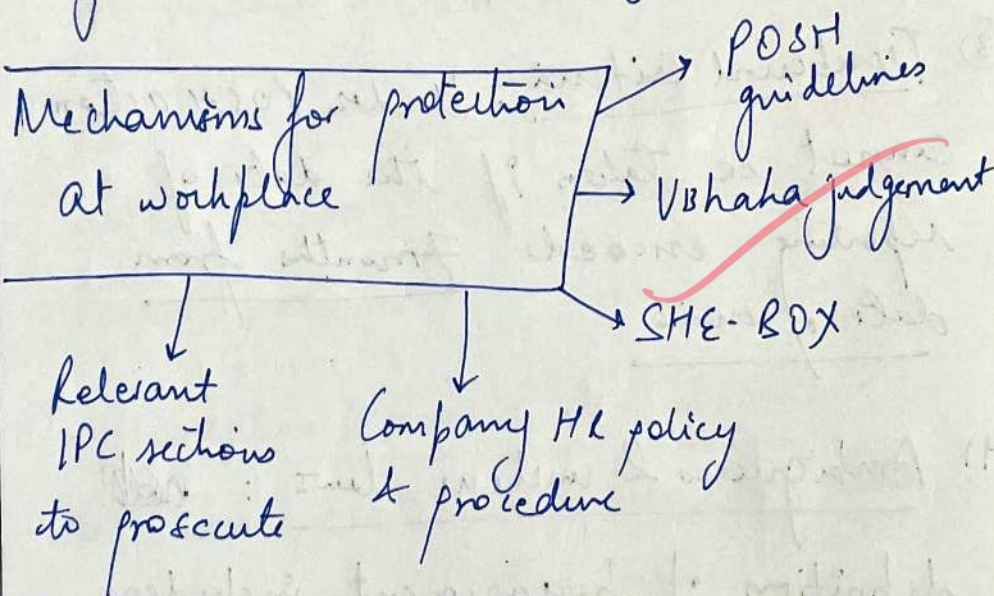 Mechanisms for protection
at workplace
POSH
guidelines
Vishaka judgement
SHE-BOX
Relevant
IPC sections
to prosecute
Company HR policy
& procedure